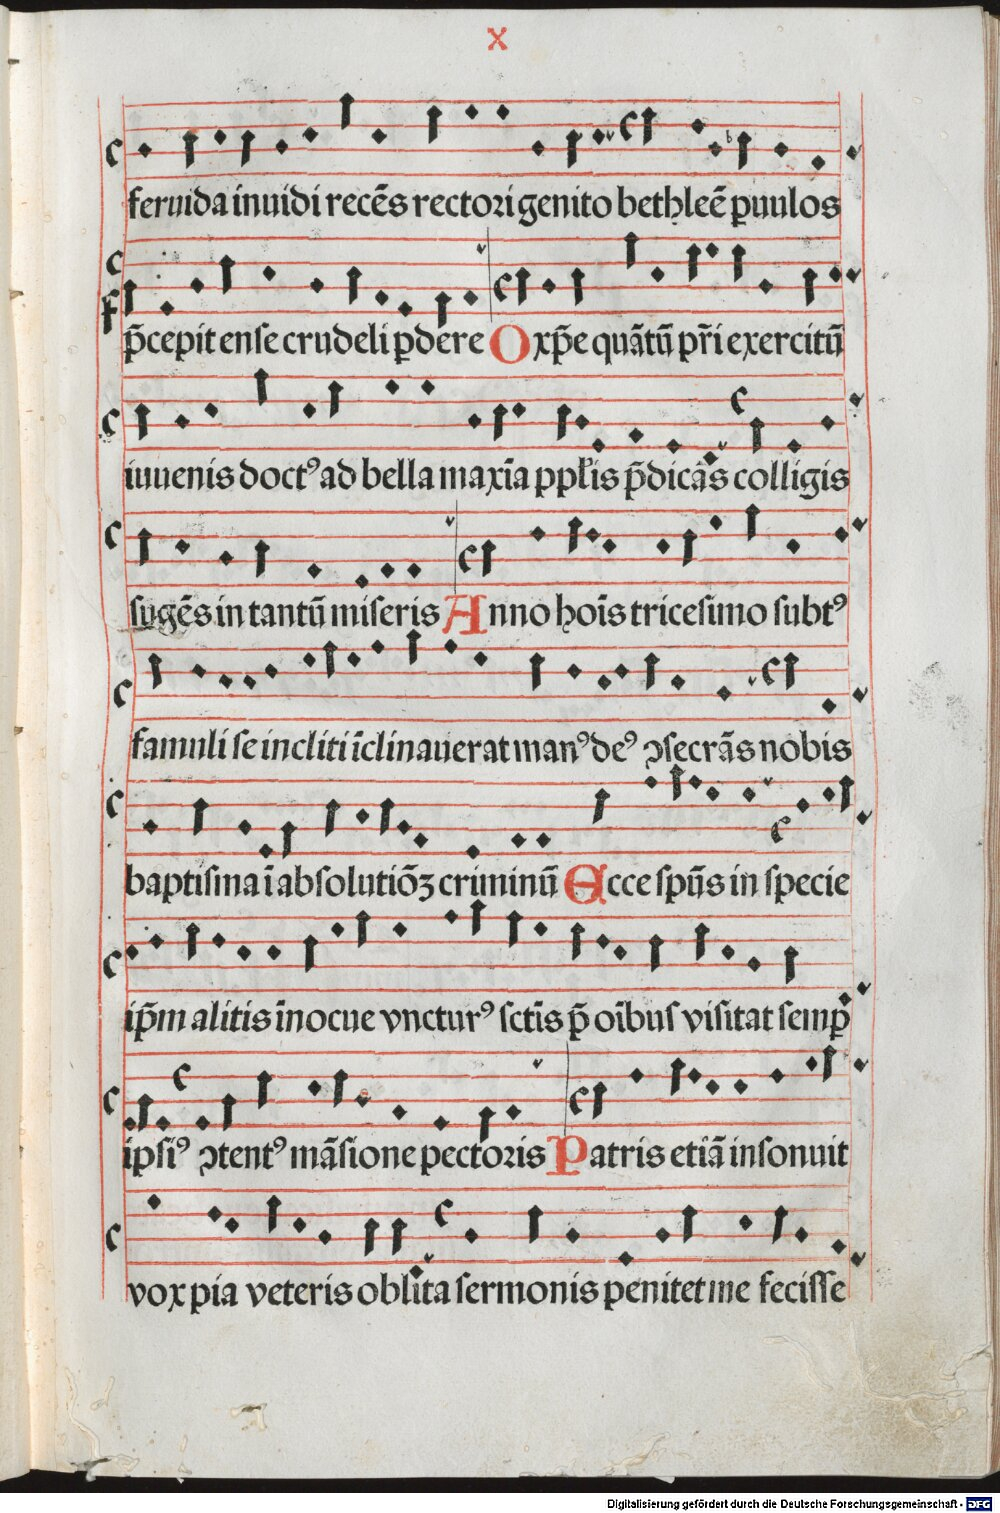 x
feruida inuidi recēs rectori genito bethleē ꝑuulos
p̄cepit ense crudeli ꝑdere O xp̄e quātū pr̄i exercitū
iuuenis doctꝰ ad bella maxīa ppl̄is p̄dicās colligis
sugēs in tantū miseris Anno hoīs tricesimo subtꝰ
famuli se incliti īclinauerat manꝰ deꝰ ↄsecrās nobis
baptisma ī absolutiōꝫ criminū Ecce spūs in specie
ip̄m alitis īnocue vncturꝰ sctīs p̄ oībus visitat semꝑ
ipsiꝰ ↄtentꝰ māsione pectoris Patris etiā insonuit
vox pia veteris oblita sermonis penitet me fecisse
Digitalisierung gefördert durch die Deutsche Forschungsgemeinschaft - DFG